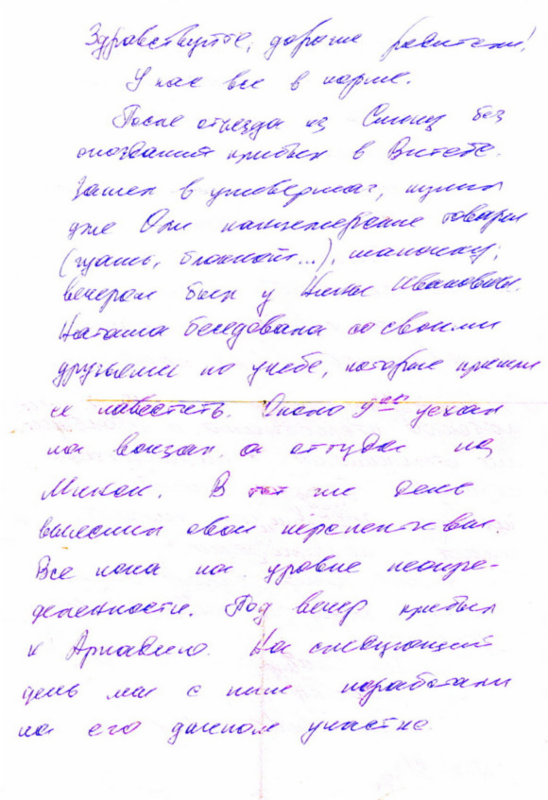 Здравствуйте, дорогие родители!
У нас все в норме.
После отъезда из Сенниц без
опоздания прибыл в Витебск.
Зашел в универмаг, купил
для Оли канцелярские товары
(гуашь, блокнот...), шапочку;
вечером был у Нины Ивановны.
Наташа беседовала со своими
друзьями по учебе, которые пришли
ее навестить. Около 9 уехал
на вокзал, а оттуда на
Минск. В тот же день
выяснил свои перспективы.
Все пока на уровне неопре-
деленности. Под вечер прибыл
к Аркадию. На следующий
день мы с ним поработали
на его дачном участке.